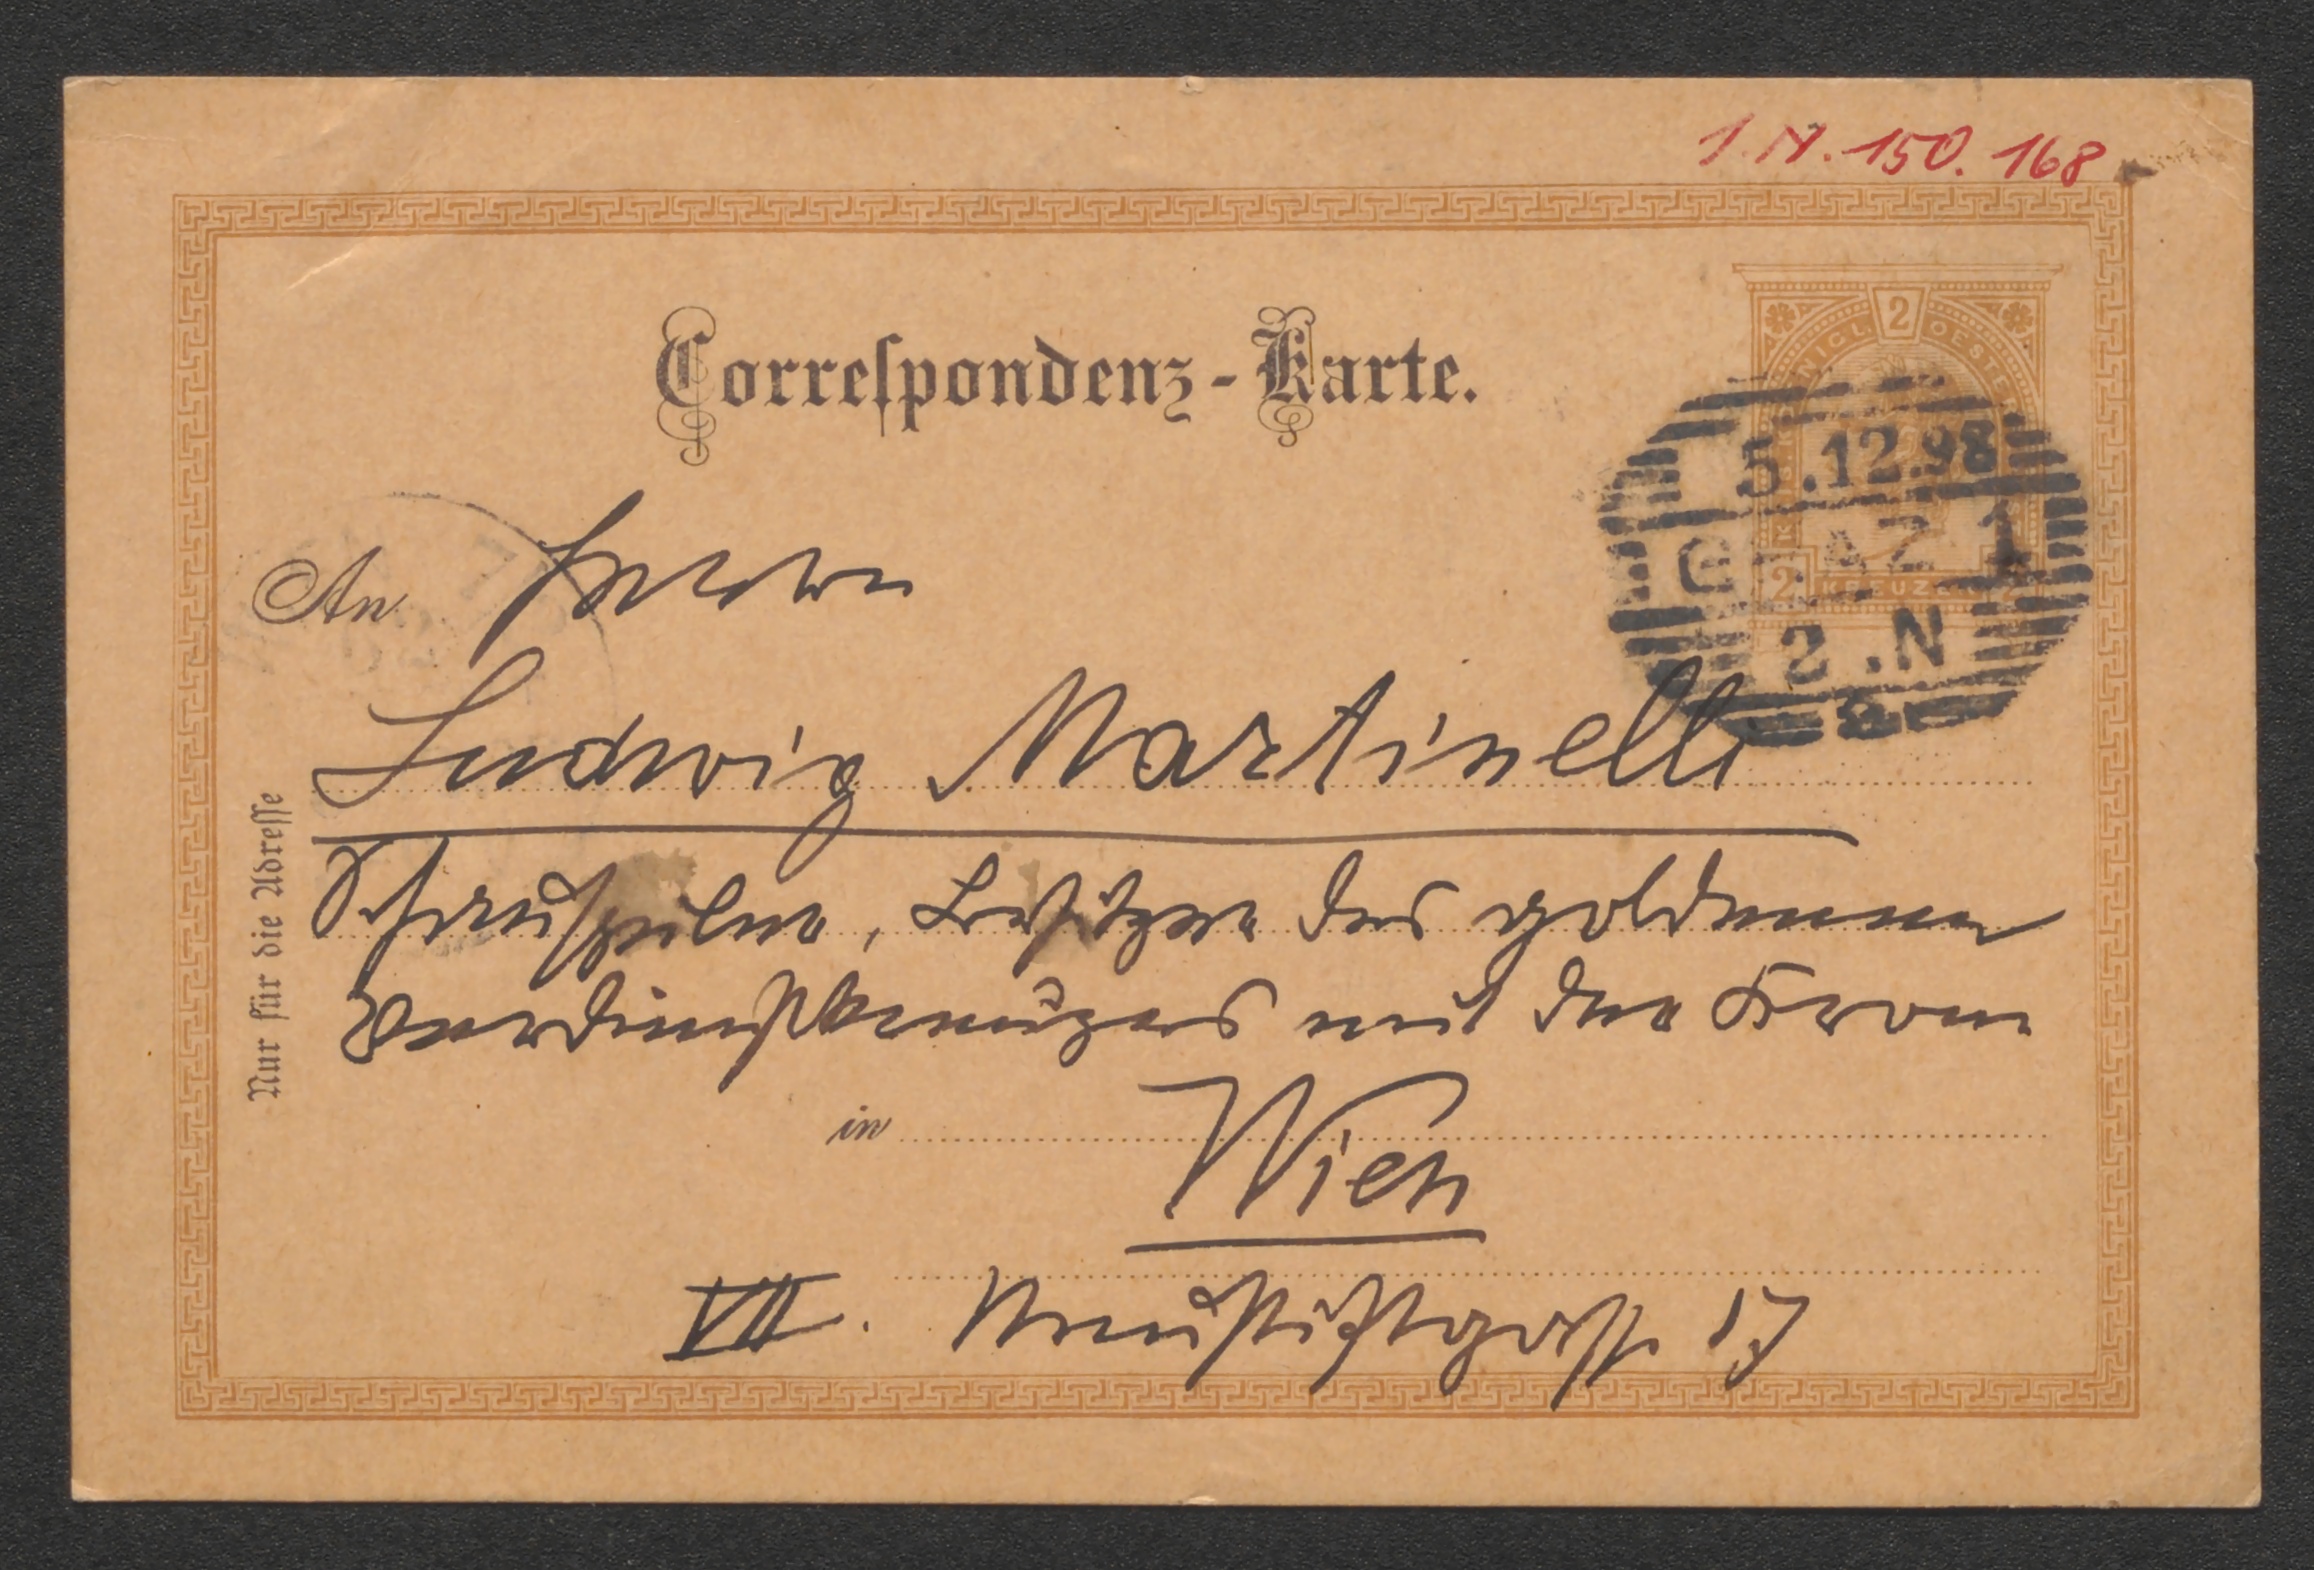 I. N. 150.168
Correspondenz-Karte.
2
5.12.98
GRAZ 1
2 KREUZER 2
2.N
An Herrn
Ludwig Martinelli
Schauspieler, Besitzer des goldenen
Verdienstkreuzes mit der Krone
in Wien
VII. Neustiftgasse 17
Nur für die Adresse